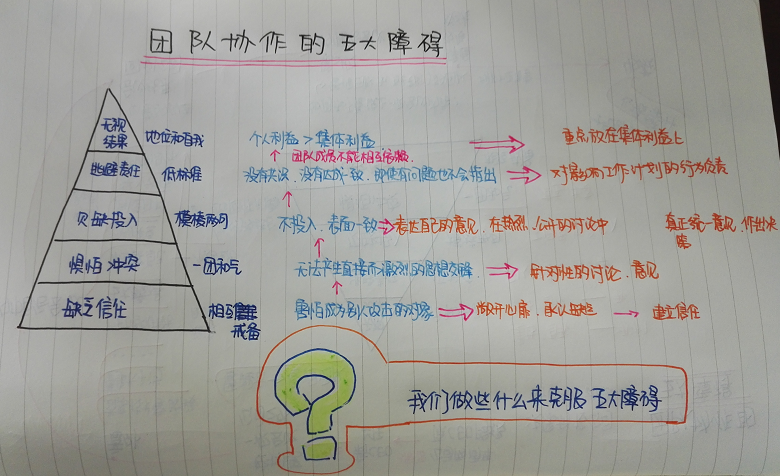 团队协作的五大障碍
无视
结果
地位和自我
个人利益>集体利益
重点放在集体利益上
团队成员不能相互负责
逃避责任
低标准
没有共识、没有达成一致、即使有问题也不会指出
对影响工作计划的行为负责
欠缺投入
模棱两可
不投入、表面一致
表达自己的意见、在热烈、公开的讨论中
真正统一意见,作出决
策
惧怕冲突
一团和气
无法产生直接而激烈的思想交锋
针对性的讨论、意见
缺乏信任
相互
戒备
害怕成为别人攻击的对象
敞开心扉、承认缺点
建立信任
我们做些什么来克服五大障碍